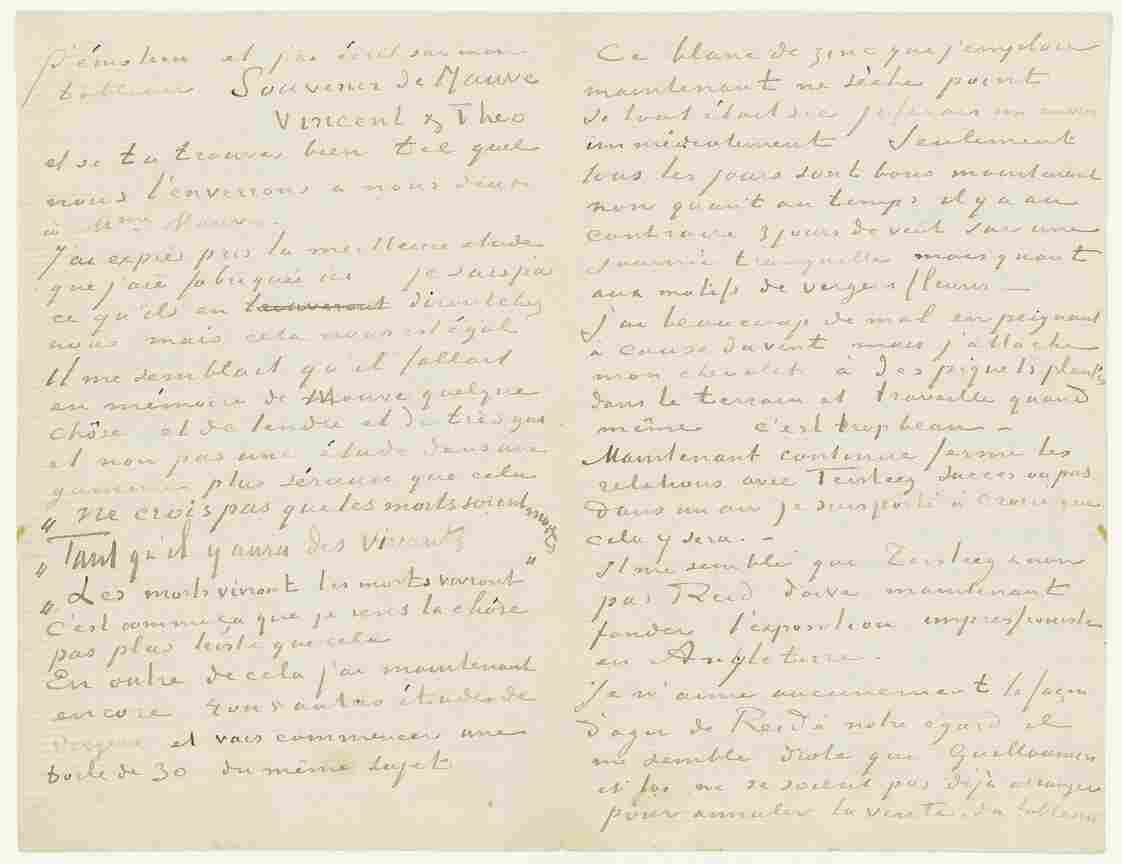 d'émotion et j'ai écrit sur mon
tableau Souvenir de Mauve
Vincent & Theo
et si tu trouves bien tel quel
nous l'enverrons a nous deux
à Mme Mauve.
J'ai exprès pris la meilleure etude
que j'aie fabriquée ici je sais pas
ce qu'ils en trouveront diront chez
nous mais cela nous est égal
Il me semblait qu'il fallait
en mémoire de Mauve quelque
chôse et de tendre et de très gai
et non pas une étude dans une
gamme plus sérieuse que cela
„ Ne crois pas que les morts soient morts
„ Tant qu'il y aura des vivants
„ Les morts vivront les morts vivront"
C'est comme ça que je sens la chôse
pas plus triste que cela
En outre de cela j'ai maintenant
encore 4 ou 5 autres études de
vergers et vais commencer une
toile de 30 du même sujet
Ce blanc de zinc que j'emploie
maintenant ne sèche point
Si tout était sec je ferais un envoi
immédiatement Seulement
tous les jours sont bons maintenant
non quant au temps il y a au
contraire 3 jours de vent sur une
journée tranquille mais quant
aux motifs de vergers fleuris –
J'ai beaucoup de mal en peignant
à cause du vent mais j'attache
mon chevalet à des piquets plantés
dans le terrain et travaille quand
même c'est trop beau –
Maintenant continue ferme les
relations avec Tersteeg succes ou pas
Dans un an je suis porté à croire que
cela y sera. –
Il me semble que Tersteeg & non
pas Reid doive maintenant
fonder l'exposition impressioniste
en Angleterre.
Je n'aime aucunement la façon
d'agir de Reid à notre égard et
me semble drole que Guillaumin
et lui ne se soient pas déjà arrangés
pour annuler la vente du tableau